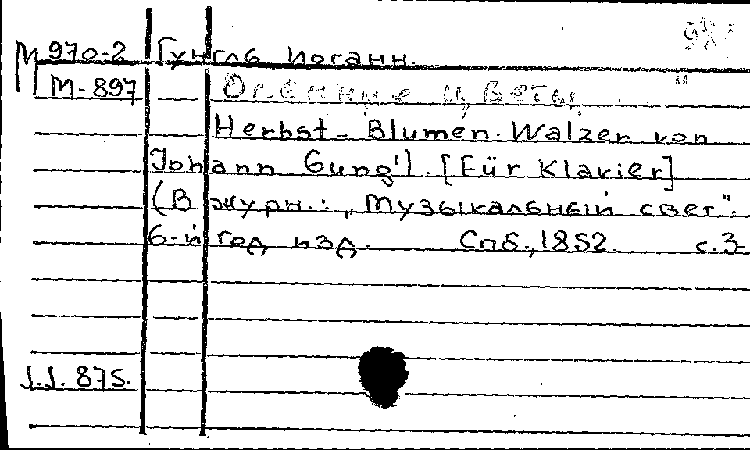 М 970-2 Гунгль Иоганн.
М-897 Осенние цветы
Herbst-Blumen-Walzer von
Johann Gung'l. [Für Klavier]
(В журн.: „Музыкальный свет".
6-й год изд. Спб., 1852. с.3-
J.J. 875.